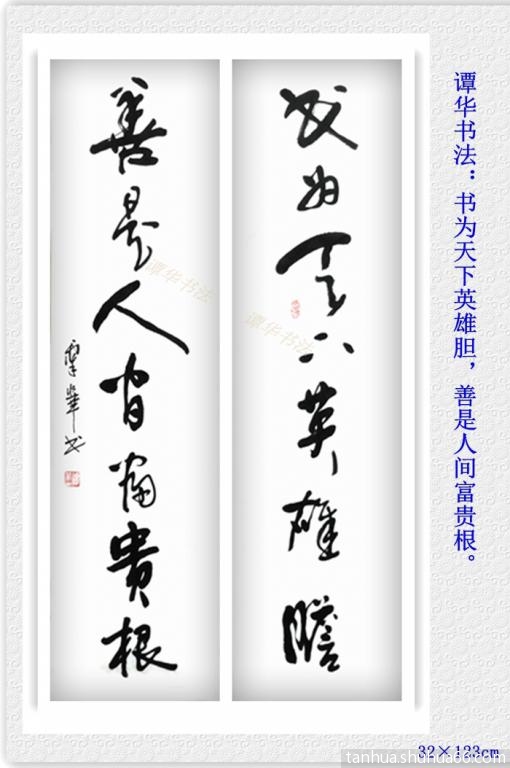 谭华书法：书为天下英雄胆，善是人间富贵根。
书为天下英雄胆
善是人间富贵根
覃華书
谭华书法
谭华书法
32×123cm
tanhua.shuhua66.com